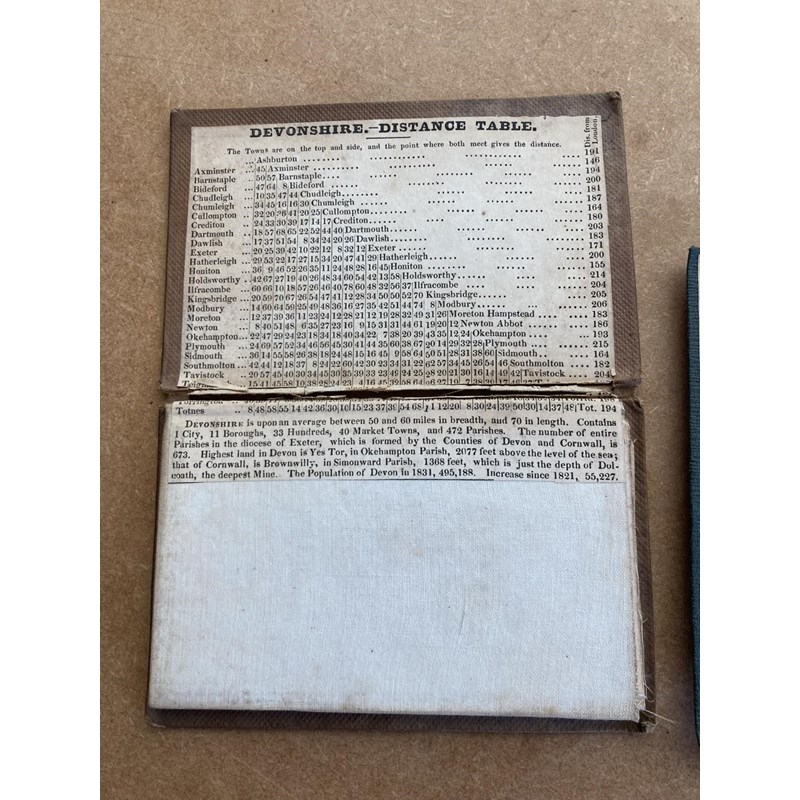 DEVONSHIRE.—DISTANCE TABLE.
The Towns are on the top and side, and the point where both meet gives the distance.
Dis. from London.
... Ashburton ........ 191
Axminster .. 45 Axminster ..... 146
Barnstaple .. 50 57 Barnstaple.... 194
Bideford .. 47 64 8 Bideford ..... 200
Chudleigh .. 10 35 47 44 Chudleigh....... 181
Chumleigh .. 34 45 16 16 30 Chumleigh .... 187
Cullompton .. 32 20 38 41 20 25 Cullompton..... 164
Crediton .. 24 33 30 39 17 14 17 Crediton...... 180
Dartmouth .. 18 57 68 65 22 52 44 40 Dartmouth.... 203
Dawlish .. 17 37 51 54 8 34 24 20 26 Dawlish..... 183
Exeter .. 20 25 39 42 10 22 12 8 32 12 Exeter ...... 171
Hatherleigh .. 29 53 22 17 27 15 34 20 47 41 29 Hatherleigh.... 200
Honiton .. 36 9 46 52 26 35 11 24 48 28 16 45 Honiton ..... 155
Holdsworthy .. 42 67 27 19 40 26 48 34 60 54 42 13 58 Holdsworthy .... 214
Ilfracombe .. 60 66 10 18 57 26 46 40 78 60 48 32 56 37 Ilfracombe .... 204
Kingsbridge .. 20 59 70 67 26 54 47 41 12 28 34 50 50 52 70 Kingsbridge.... 205
Modbury .. 14 60 64 59 25 49 48 36 16 27 35 42 51 44 74 8 Modbury...... 206
Moreton .. 12 37 39 36 11 23 24 12 28 21 12 19 28 32 49 31 26 Moreton Hampstead .... 183
Newton .. 8 40 51 48 6 35 27 23 16 9 15 31 31 44 61 19 20 12 Newton Abbot .... 186
Okehampton... 22 47 29 24 23 18 34 18 40 34 22 7 38 20 39 43 35 12 24 Okehampton .... 193
Plymouth .. 24 69 57 52 34 46 56 45 30 41 44 35 60 38 67 20 14 29 32 28 Plymouth .... 215
Sidmouth .. 36 14 55 58 26 38 18 24 48 15 16 45 9 58 64 50 51 28 31 38 60 Sidmouth.. 164
Southmolton .. 42 44 12 18 37 8 24 22 60 42 30 23 34 31 22 62 57 34 45 26 54 46 Southmolton .... 182
Tavistock .. 20 57 45 40 30 34 45 30 35 39 33 23 49 24 25 28 20 21 30 16 14 49 42 Tavistock .... 204
Totnes .. 8 48 58 55 14 42 36 30 10 15 23 37 39 54 68 11 12 20 8 30 24 39 50 30 14 37 48 Tot. 194
DEVONSHIRE is upon an average between 50 and 60 miles in breadth, and 70 in length. Contains
1 City, 11 Boroughs, 33 Hundreds, 40 Market Towns, and 472 Parishes. The number of entire
Parishes in the diocese of Exeter, which is formed by the Counties of Devon and Cornwall, is
673. Highest land in Devon is Yes Tor, in Okehampton Parish, 2077 feet above the level of the sea;
that of Cornwall, is Brownwilly, in Simonward Parish, 1368 feet, which is just the depth of Dol-
coath, the deepest Mine. The Population of Devon in 1831, 495,188. Increase since 1821, 55,227.